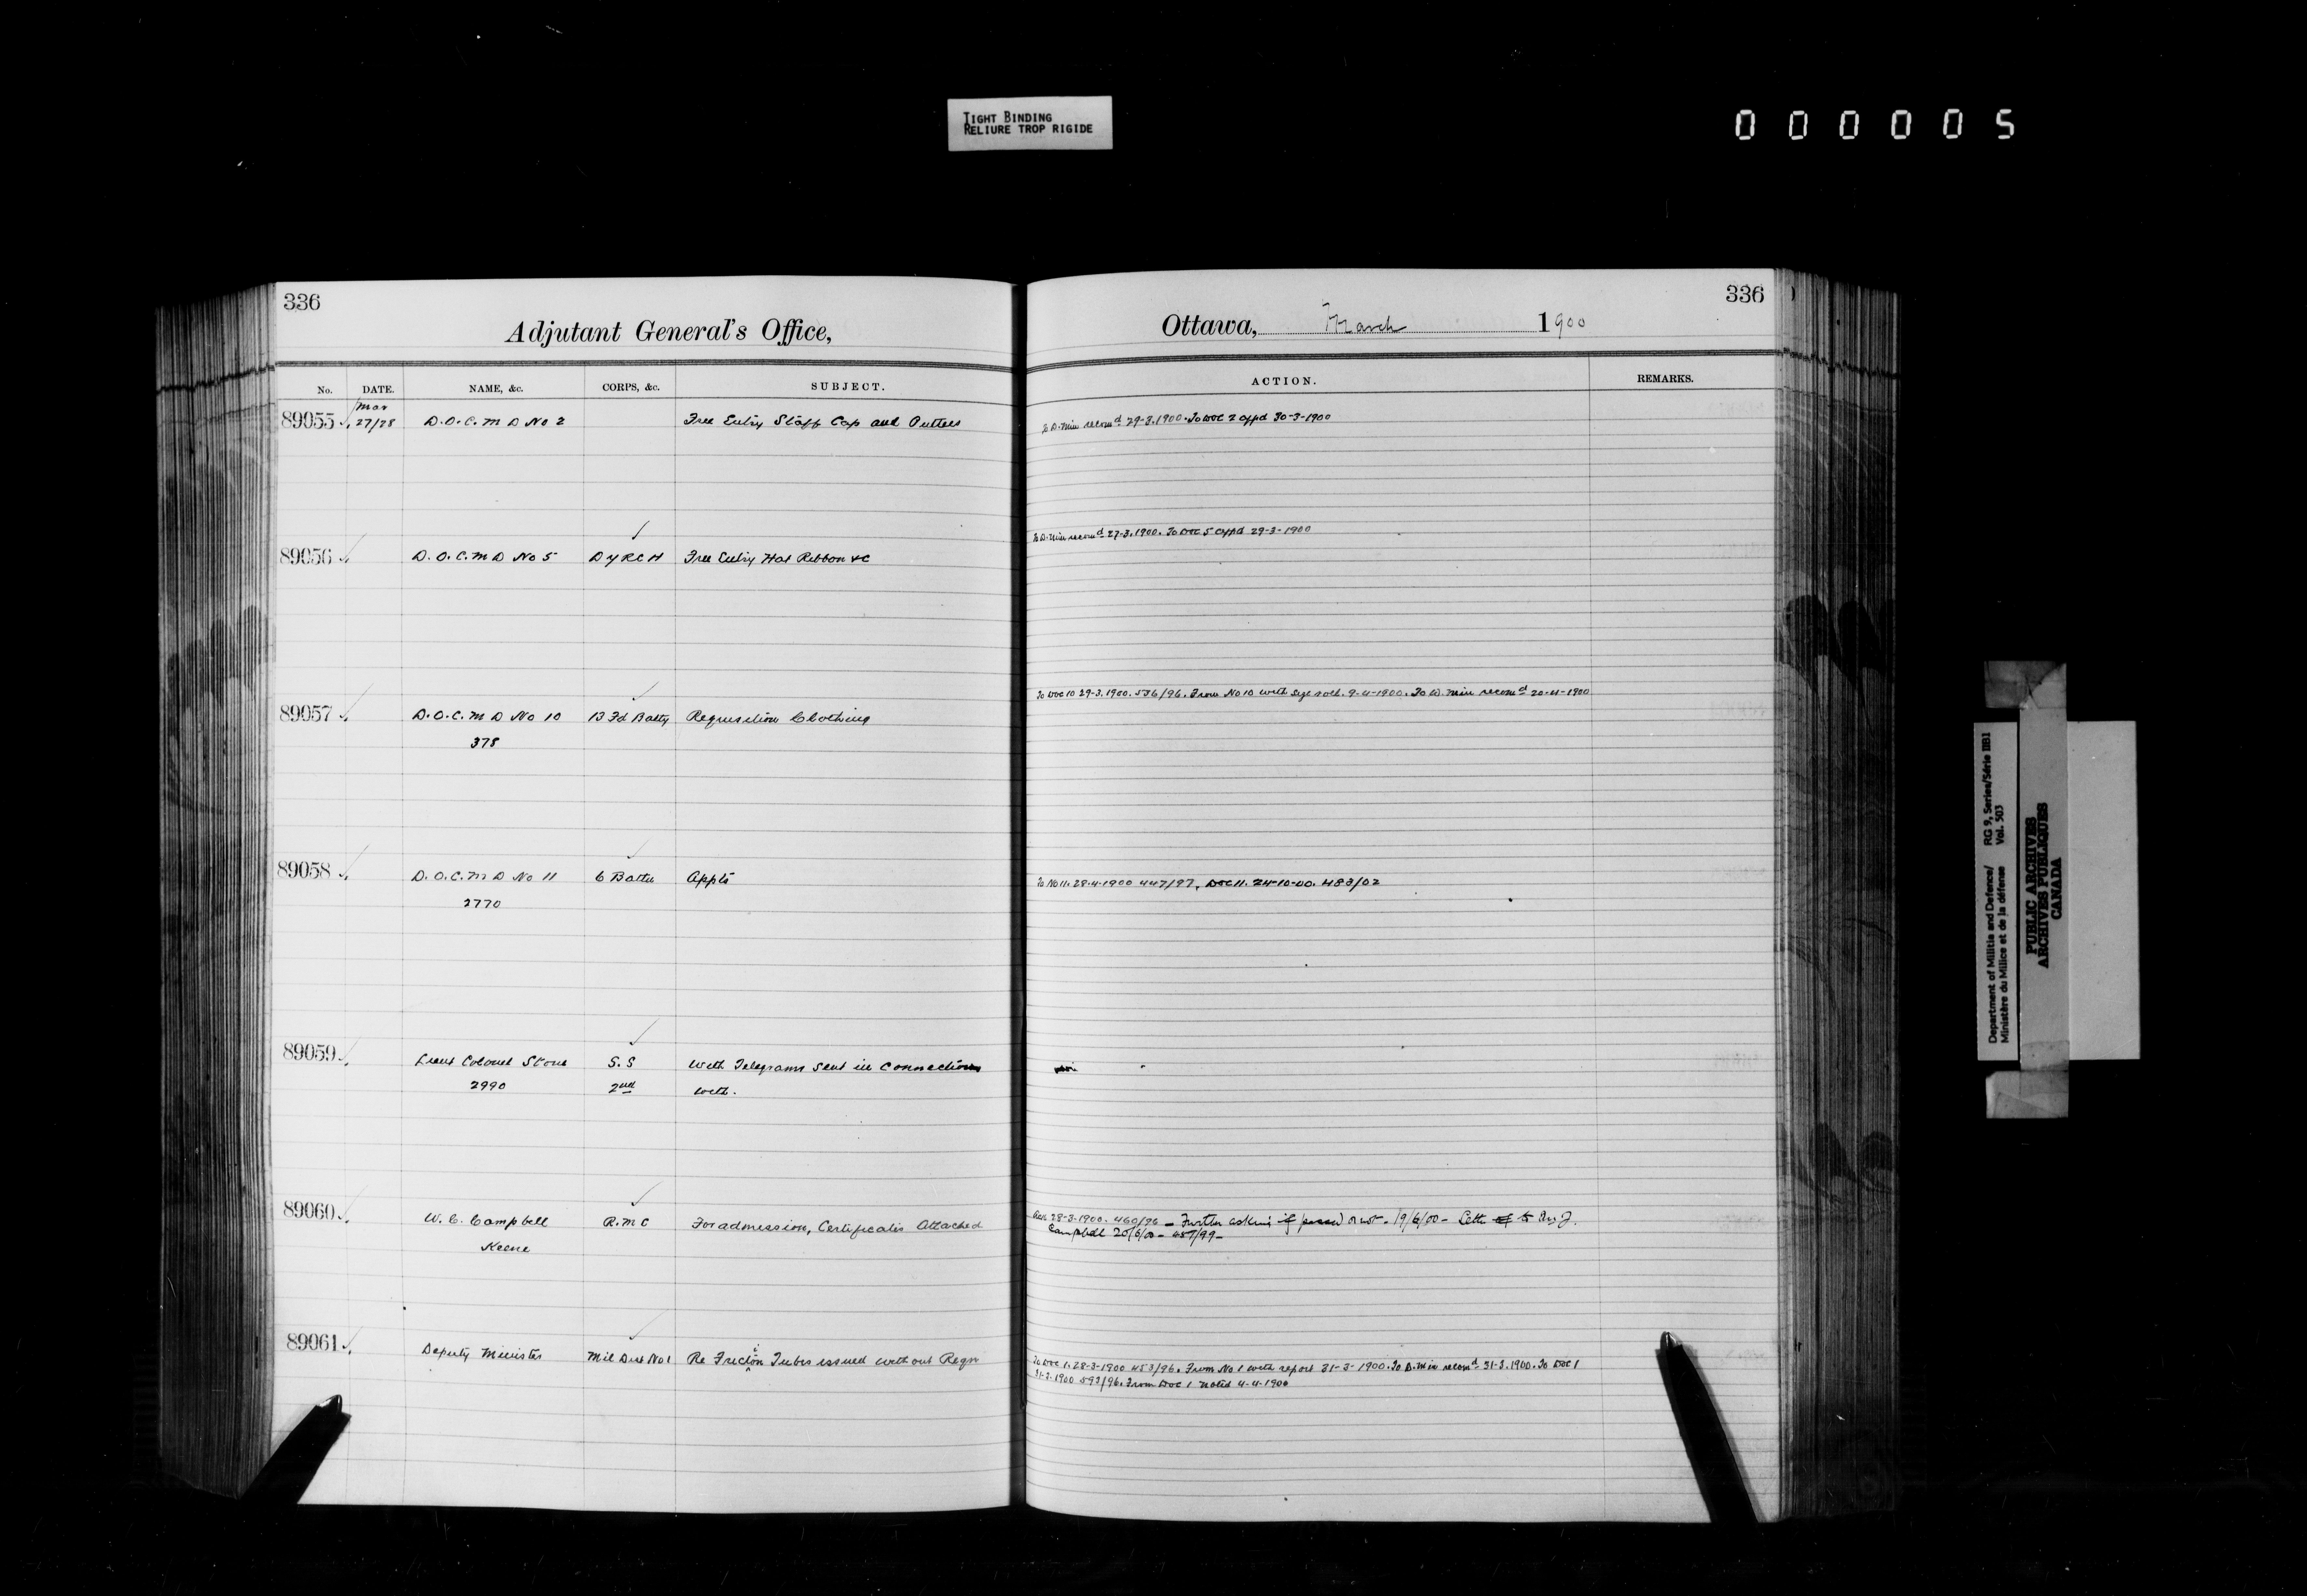 TIGHT BINDING
RELIURE TROP RIGIDE
000005
336
Adjutant General's Office,
336
Ottawa, March 1900
No. DATE. NAME, &c. CORPS, &c. SUBJECT. ACTION. REMARKS.
Mar
89055 27/28 D.O.C. M D No 2 Free Entry Staff Cap and Puttees To D. Min recomd 29-3-1900. To DOC 2 appd 30-3-1900
To D. Min recomd 27-3-1900. To DOC 5 appd 29-3-1900
89056 D.O.C. M D No 5 D Y R C H Free Entry Hat Ribbon &c
To DOC 10 29-3-1900. 536/96. From No 10 with 9-4-1900. To D. Min recomd 20-4-1900
89057 D.O.C. M D No 10 13 Fd Batty Requisition Clothing
378
89058 D.O.C. M D No 11 6 Battn Appts To No 11. 28-4-1900 447/97. DOC 11. 24-10-00. 483/02
2770
89059 Lieut Colonel Stone S.S With Telegrams sent in connection
2990 2nd with.
89060 W. C. Campbell R.M C For admission, Certificates Attached 28-3-1900. 460/96 – Further asking if passed or not. 19/6/00 – to J.
Keene Campbell 20/6/00 – 487/99 –
89061 Deputy Minister Mil Dist No 1 Re Friction Tubes issued without Reqn To DOC 1. 28-3-1900 453/96. From No 1 with report 31-3-1900. To D. Min recomd 31-3-1900. To DOC 1
31-3-1900 593/96. From DOC 1 noted 4-4-1900
Department of Militia and Defence/ RG 9, Series/Série IIB1
Ministère du Milice et de la défense Vol. 503
PUBLIC ARCHIVES
ARCHIVES PUBLIQUES
CANADA